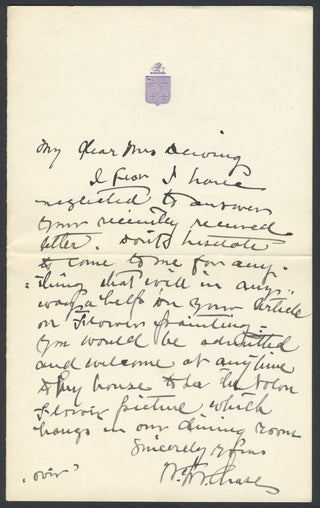 My dear Mrs Dewing
I fear I have
neglected to answer
your recently received
letter. Don't hesitate
to come to me for any-
thing that will in any-
way a help on your article
on Flower painting.
You would be admitted
and welcome at anytime
to my house to see the
Flower picture which
hangs in our dining room
Sincerely yours
Wm M. Chase
"over"